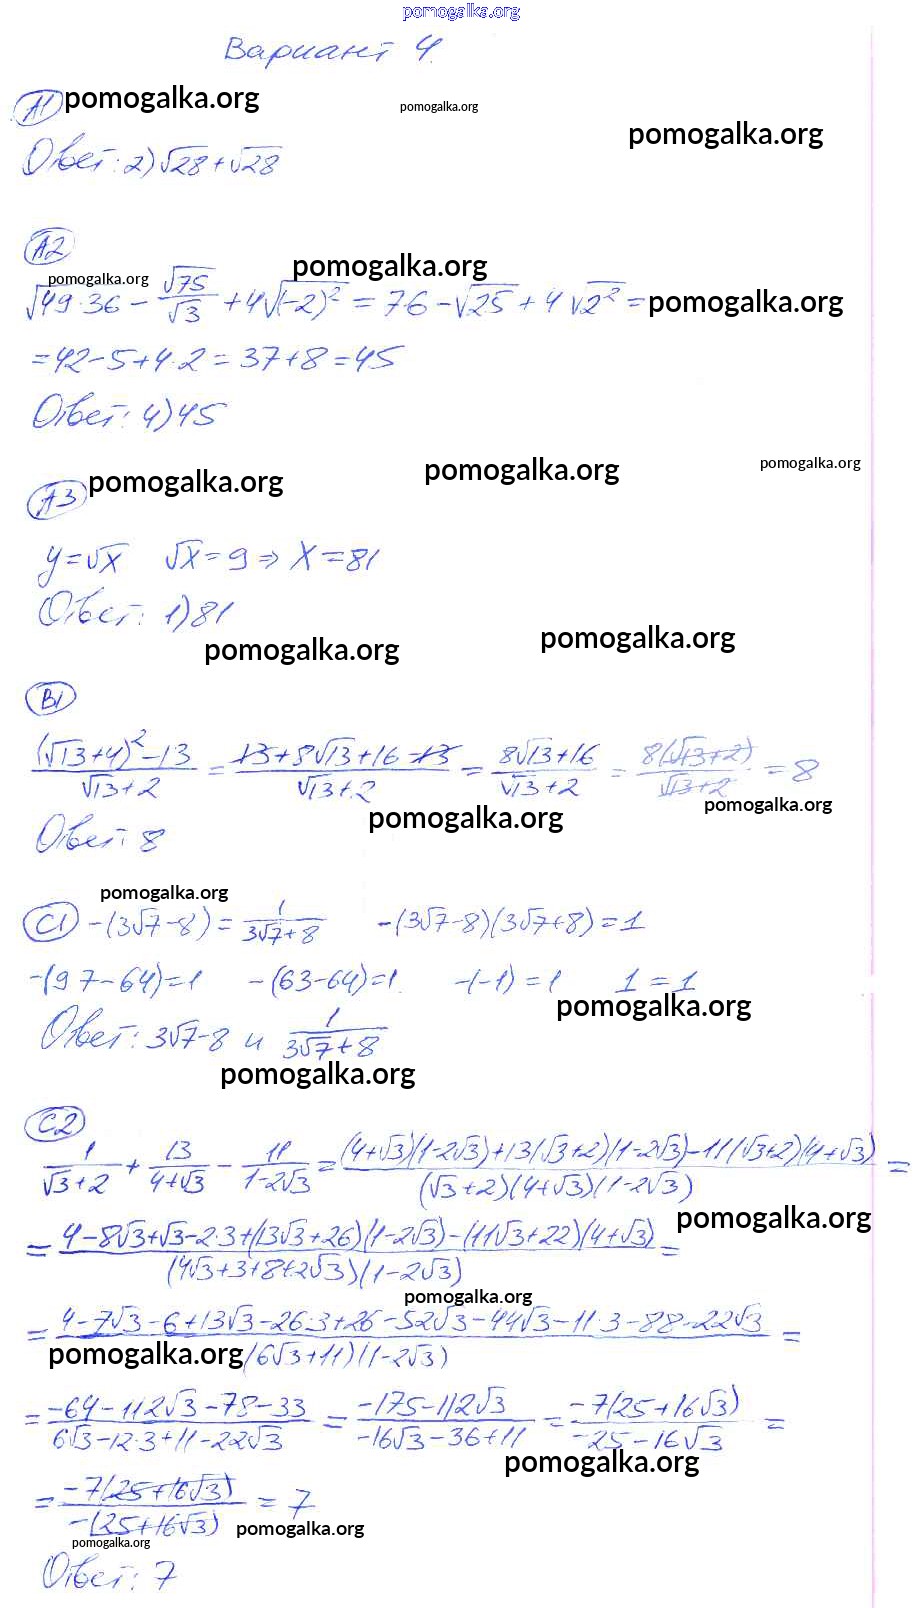 pomogalka.org
Вариант 4.
A1 pomogalka.org pomogalka.org
pomogalka.org
Ответ: 2) √28 + √28
A2
pomogalka.org pomogalka.org
√49·36 − √75/√3 + 4√(−2)² = 7·6 − √25 + 4√2² = pomogalka.org
= 42 − 5 + 4·2 = 37 + 8 = 45
Ответ: 4) 45
A3 pomogalka.org pomogalka.org pomogalka.org
y = √x √x = 9 ⇒ x = 81
Ответ: 1) 81
pomogalka.org pomogalka.org
B1
(√13+4)² − 13 / √13+2 = 13+8√13+16−13 / √13+2 = 8√13+16 / √13+2 = 8(√13+2) / √13+2 = 8
pomogalka.org pomogalka.org
Ответ: 8
pomogalka.org
C1 −(3√7−8) = 1 / 3√7+8 −(3√7−8)(3√7+8) = 1
−(9·7−64)=1 −(63−64)=1. −(−1)=1 1=1
pomogalka.org
Ответ: 3√7−8 и 1 / 3√7+8
pomogalka.org
C2
1 / √3+2 + 13 / 4+√3 − 11 / 1−2√3 = (4+√3)(1−2√3)+13(√3+2)(1−2√3)−11(√3+2)(4+√3) / (√3+2)(4+√3)(1−2√3) =
pomogalka.org
= 4−8√3+√3−2·3+(13√3+26)(1−2√3)−(11√3+22)(4+√3) / (4√3+3+8+2√3)(1−2√3) =
pomogalka.org
= 4−7√3−6+13√3−26·3+26−52√3−44√3−11·3−88−22√3 / (6√3+11)(1−2√3) =
pomogalka.org
= −64−112√3−78−33 / 6√3−12·3+11−22√3 = −175−112√3 / −16√3−36+11 = −7(25+16√3) / −25−16√3 =
pomogalka.org
= −7(25+16√3) / −(25+16√3) = 7
pomogalka.org
pomogalka.org
Ответ: 7